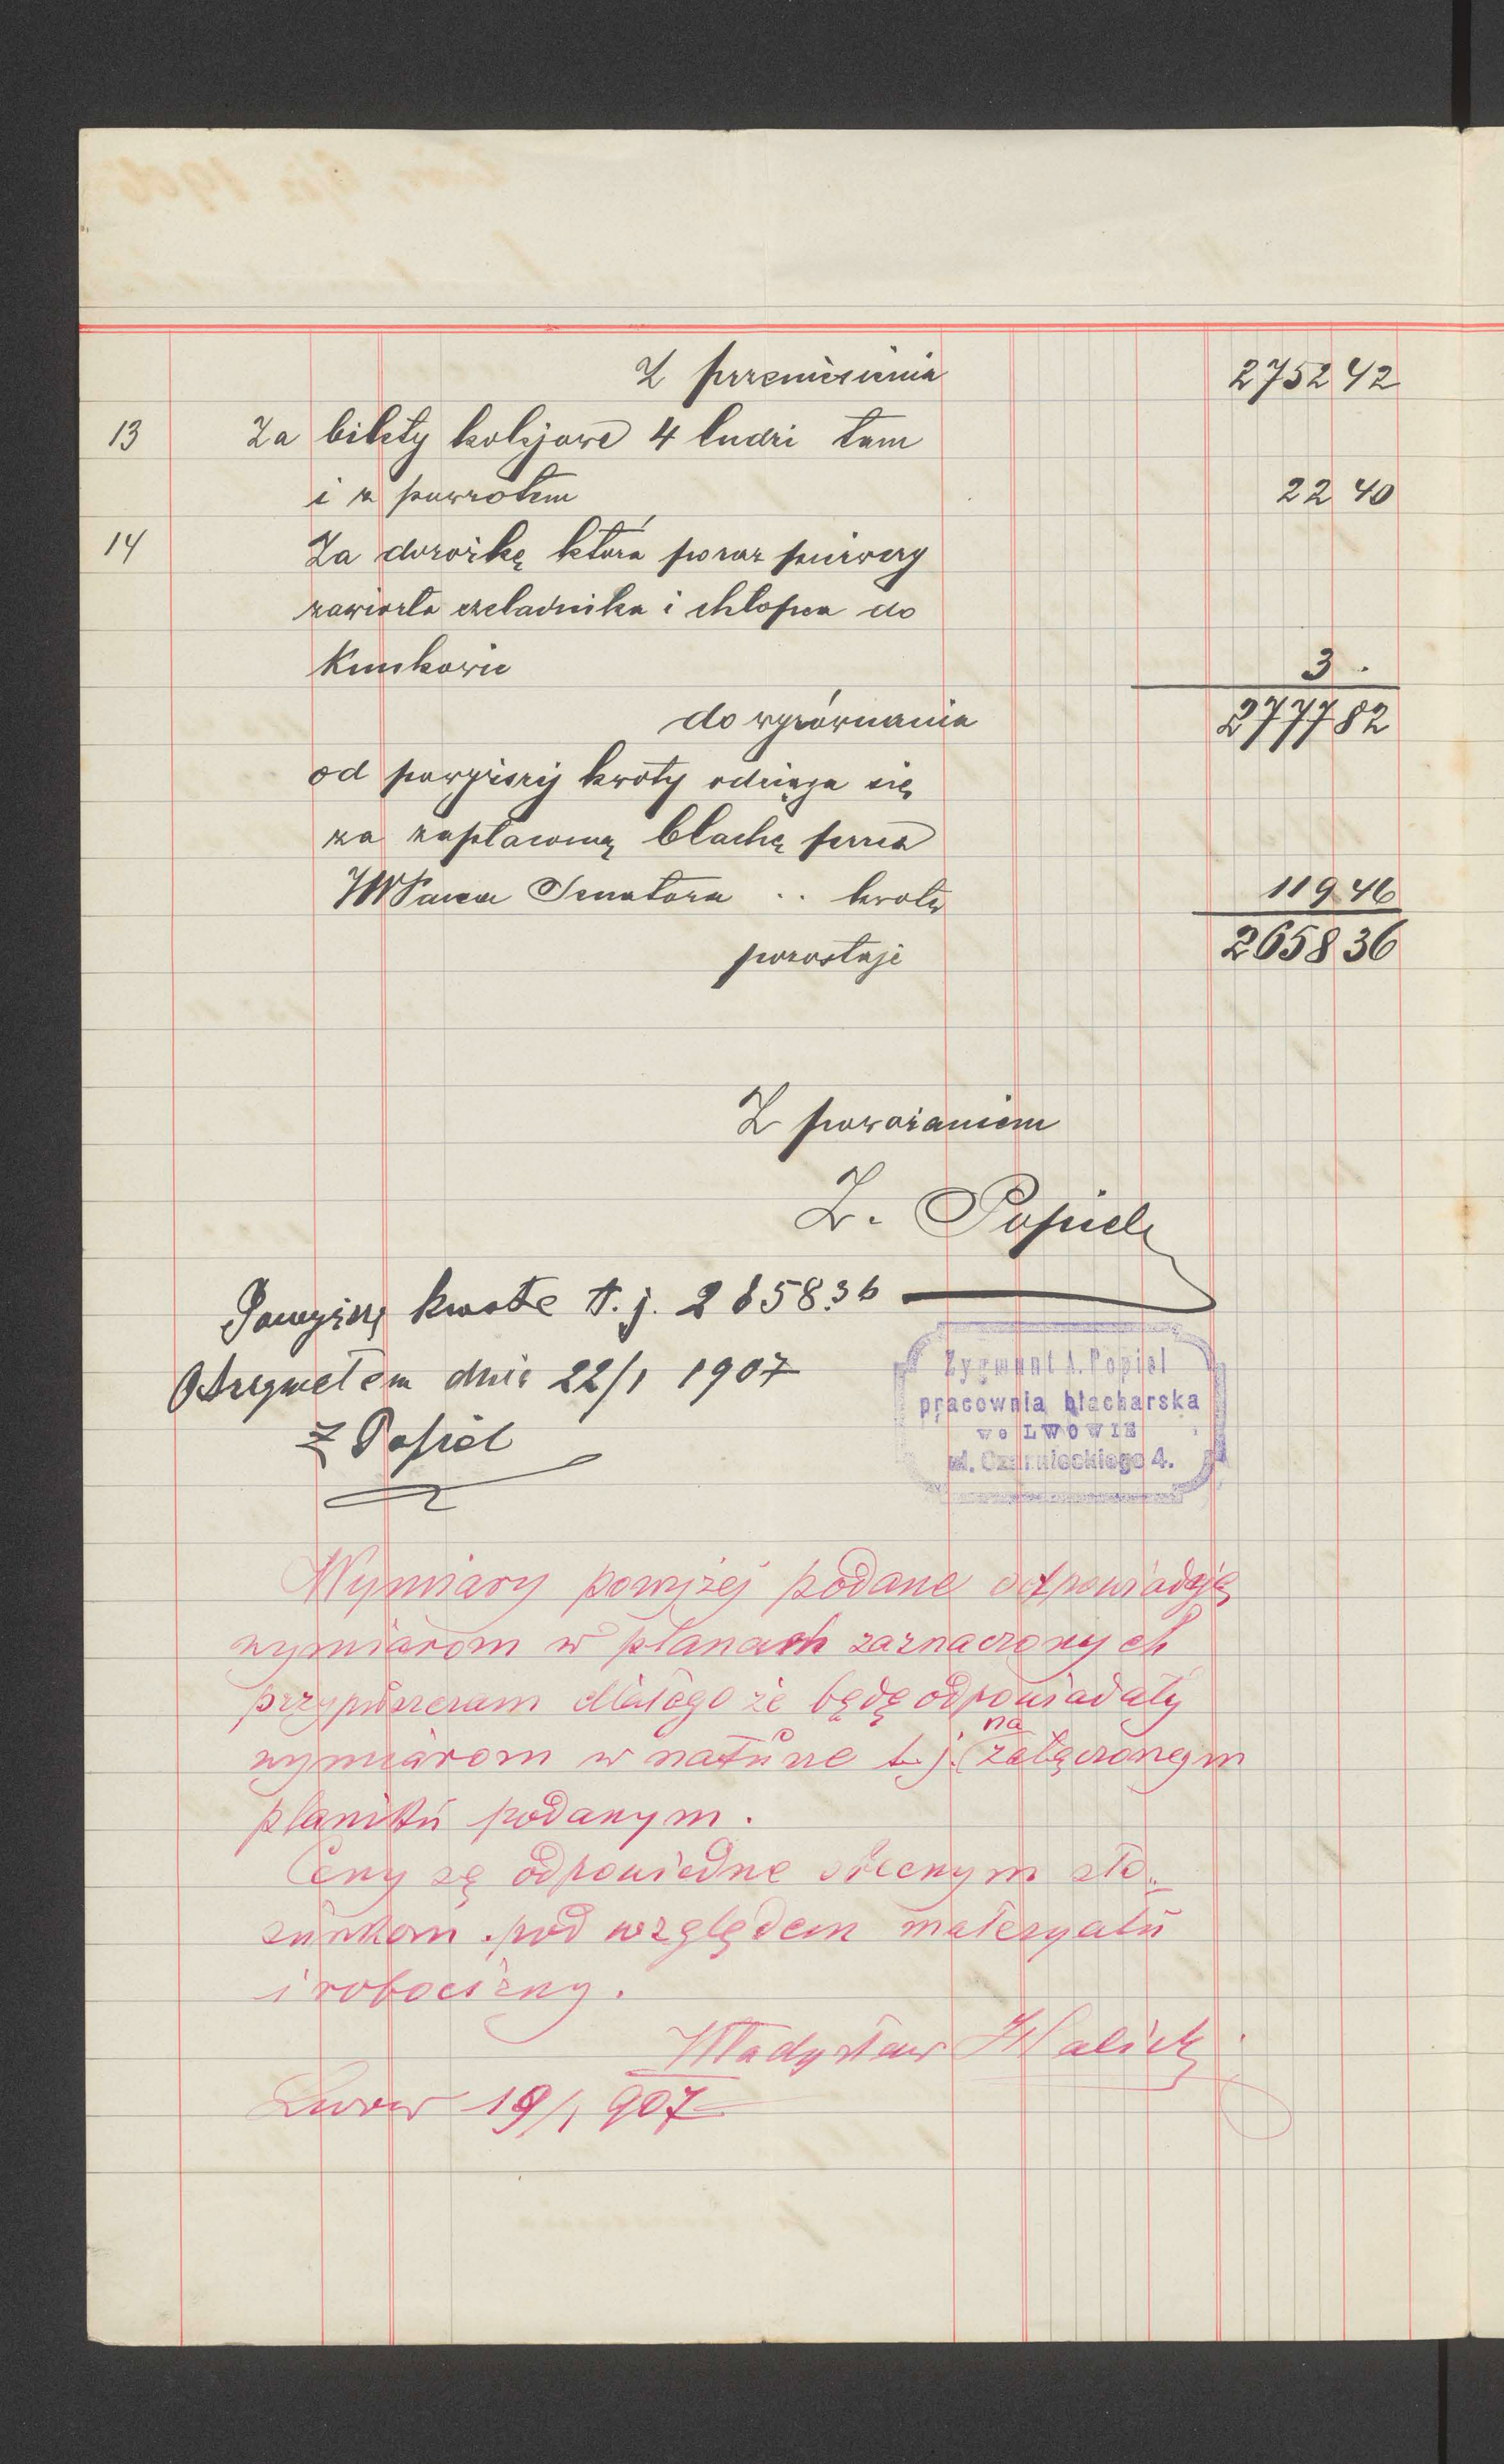 Z przeniesienia 2752 42
13 Za bilety kolejowe 4 ludzi tam
i z powrotem 22 40
14 Za dorożkę która poraz pierwszy
zawiozła czeladnika i chłopca do
3 .
do wyrównania 2777 82
od powyższej kwoty odciąga się
za zapłaconą blachę przez
JWPana Senatora .. kwotę 119 46
pozostaje 2658 36
Z poważaniem
Z. Popiel
Powyższą kwotę t. j. 2658.36
Otrzymałem dnia 22/1 1907
Z Popiel
Zygmunt A. Popiel
pracownia blacharska
we LWOWIE
ul. Czarnieckiego 4.
Wymiary powyżej podane odpowiadają
wymiarom w planach zaznaczonych
przypuszczam dlatego że będą odpowiadały
wymiarom w naturze t. j. na załączonym
planiku podanym.
Ceny są odpowiedne obecnym sto-
sunkom pod względem materyału
i robocizny.
Władysław Halicki
Lwów 19/1 907